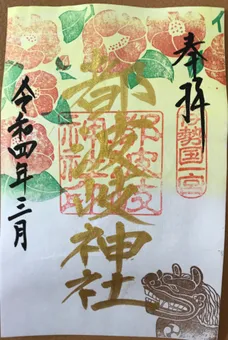 奉拝
伊勢国一宮
都波岐神社
令和四年三月